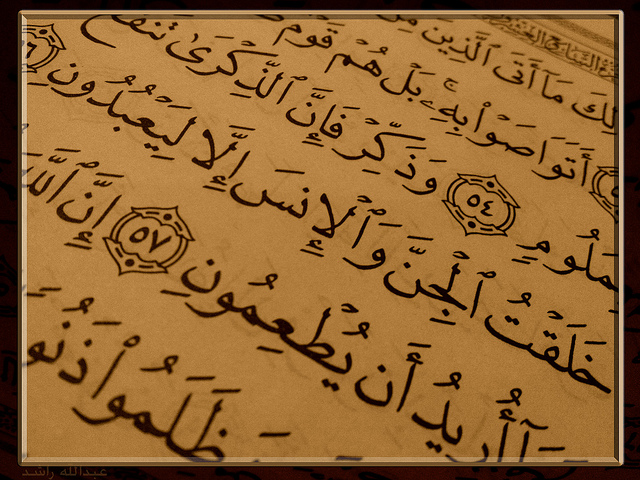 لِكَ مَآ أَتَى ٱلَّذِينَ مِن
أَتَوَاصَوْا۟ بِهِۦ ۚ بَلْ هُمْ قَوْمٌ
بِمَلُومٍ ٥٤ وَذَكِّرْ فَإِنَّ ٱلذِّكْرَىٰ تَنفَعُ
خَلَقْتُ ٱلْجِنَّ وَٱلْإِنسَ إِلَّا لِيَعْبُدُونِ ٥٦
مَآ أُرِيدُ أَن يُطْعِمُونِ ٥٧ إِنَّ ٱللَّهَ
ظَلَمُوا۟ ذَنُو
عبدالله راشد